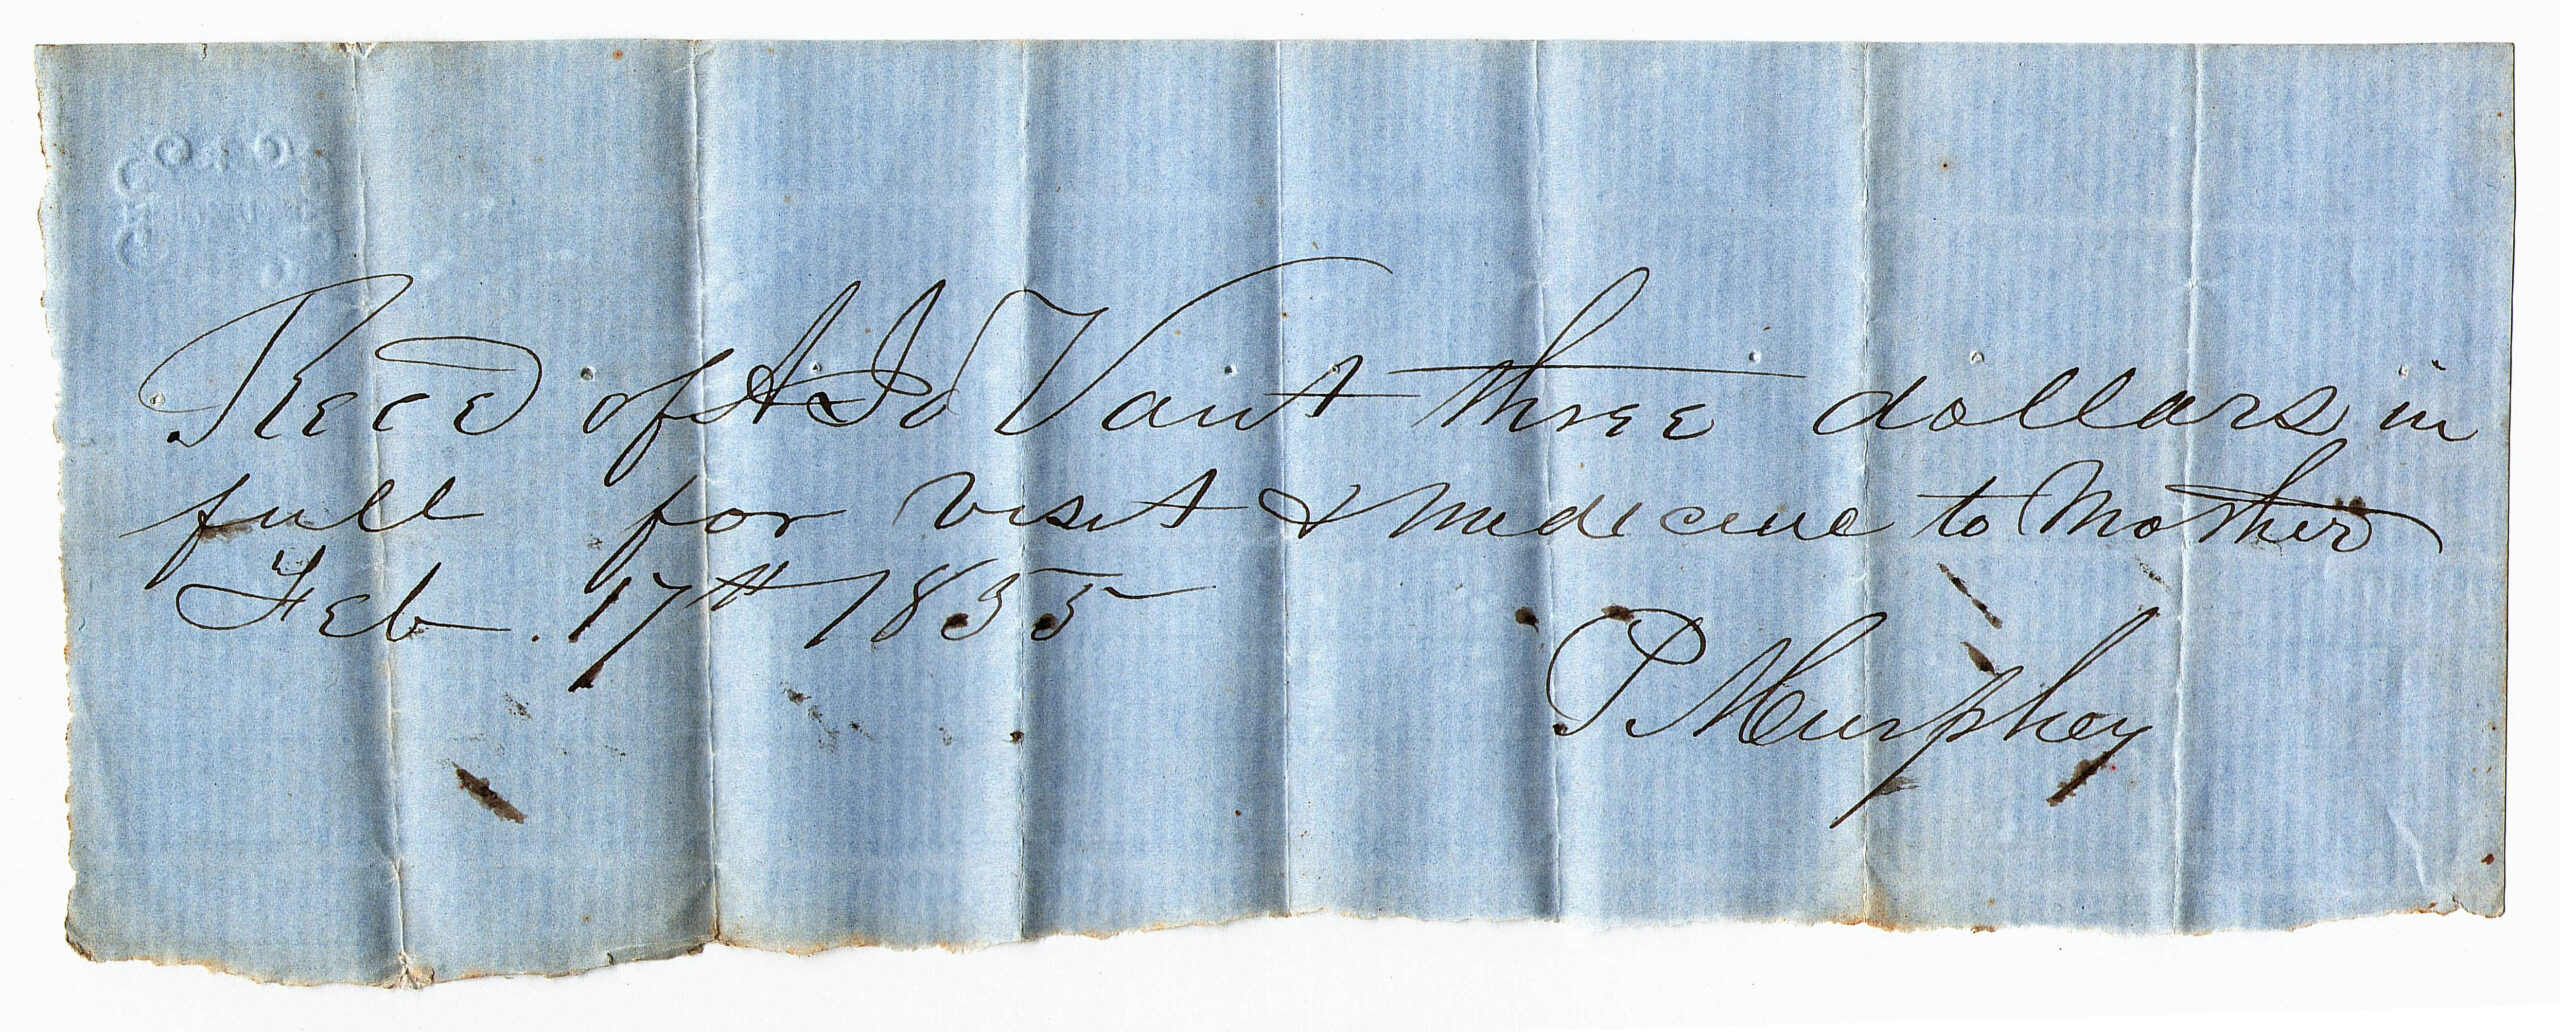 Recd of A J Vant three dollars in
full for visit & medicine to Mother
Feb. 17th 1855
P Murphey